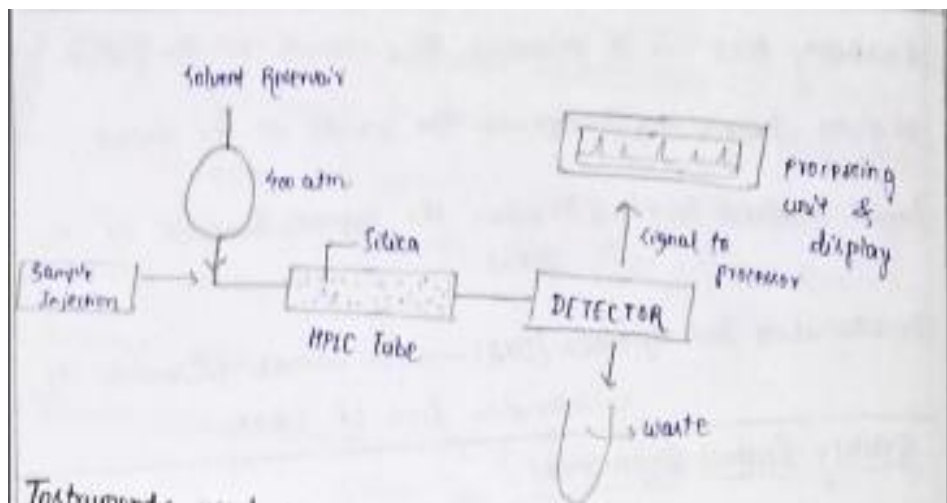 Solvent Reservoir
400 atm
Silica
Sample
Injection
HPLC Tube
DETECTOR
signal to
processor
processing
unit &
display
waste
Instrument